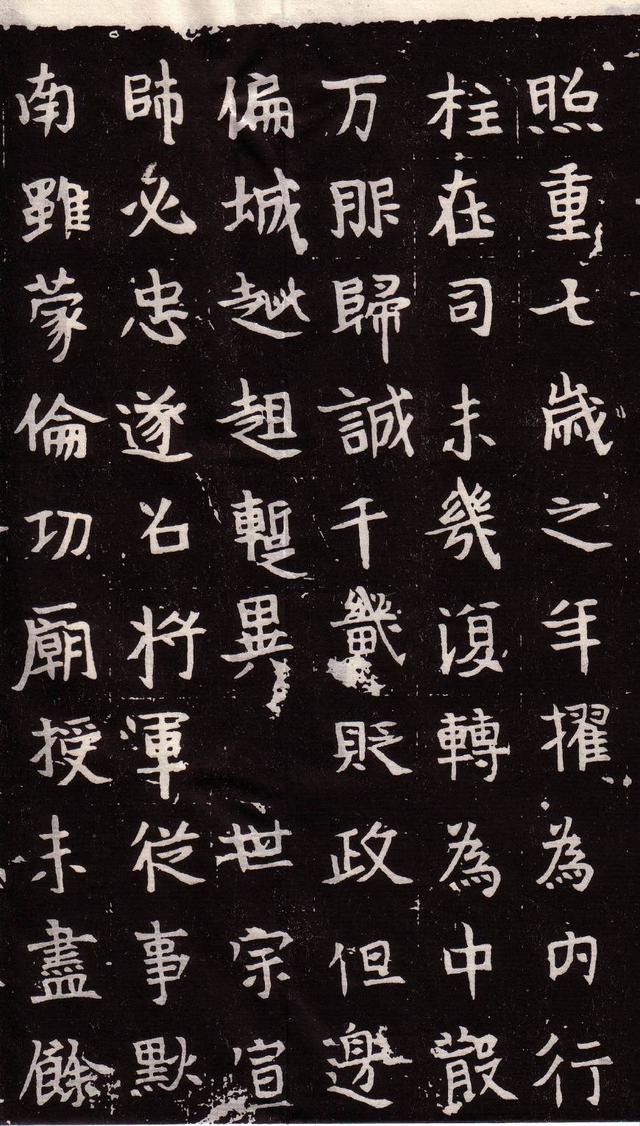 照重七歲之年擢為內行
柱在司未幾復轉為中散
万服歸誠千畿貶政但邊
偏城趑趄暫異 世宗宣
師必忠遂召將軍從事默
南雖蒙倫功廟授未盡餘